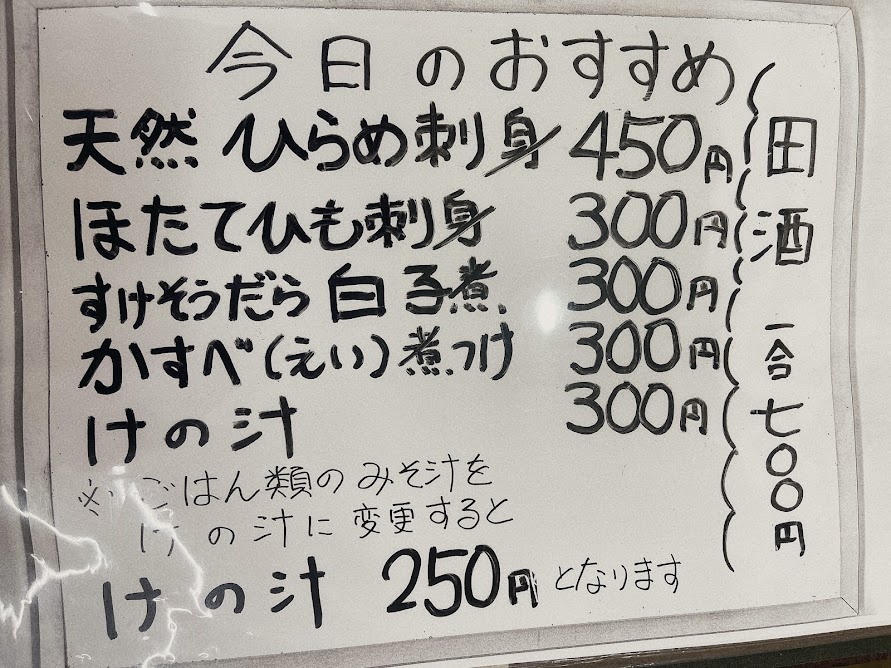 今日のおすすめ
天然 ひらめ刺身 450円
ほたてひも刺身 300円
すけそうだら白子煮 300円
かすべ(えい)煮つけ 300円
けの汁 300円
※ごはん類のみそ汁を
けの汁に変更すると
けの汁 250円となります
田酒 一合七〇〇円